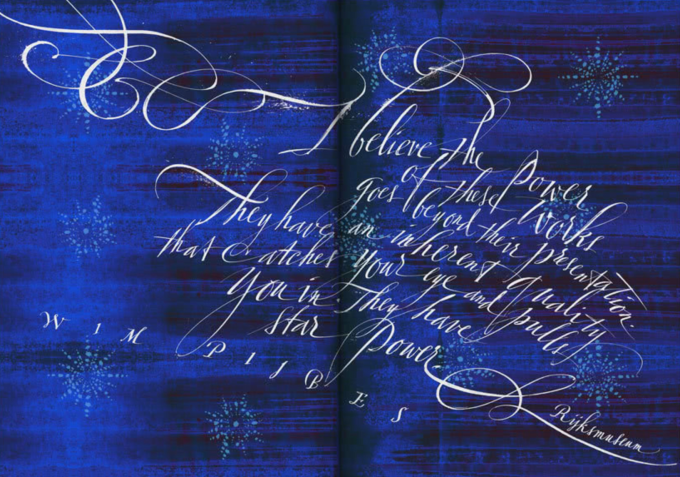 I believe the power
of these works
goes beyond their presentation.
They have an inherent quality
that catches your eye and pulls
you in. They have
star power.
WIM PIJBES
Rijksmuseum